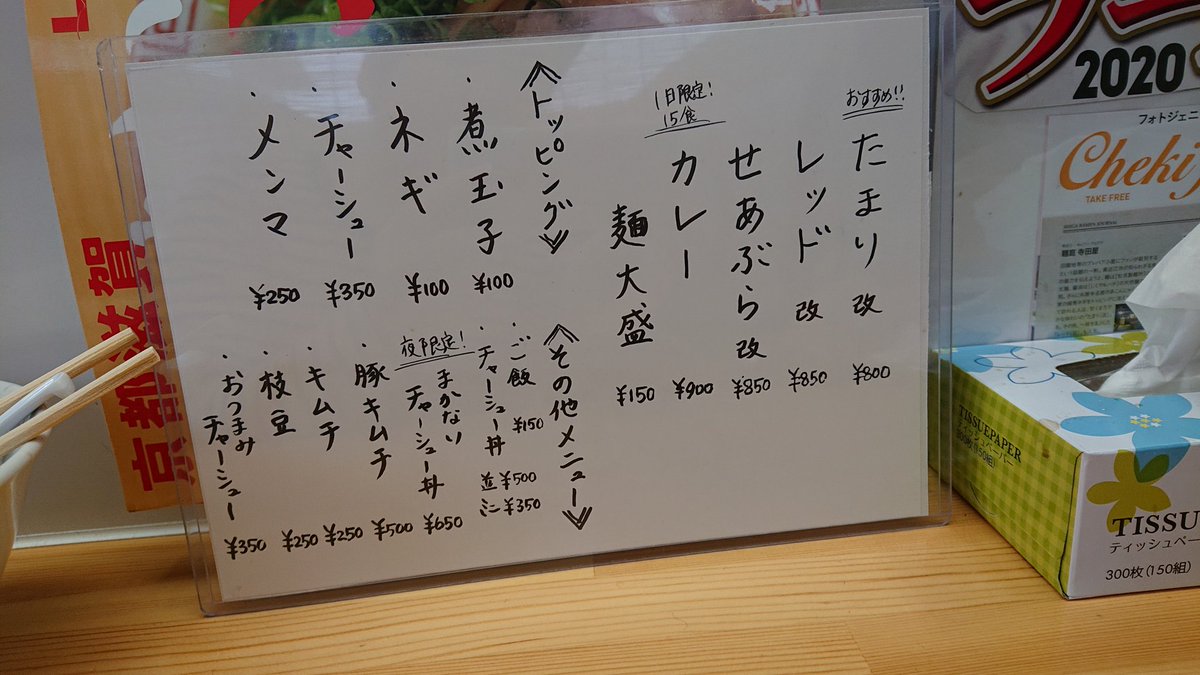 おすすめ!!
たまり改 ¥800
レッド改 ¥850
せあぶら改 ¥850
1日限定!
15食
カレー ¥900
麺大盛 ¥150
≪トッピング≫
・煮玉子 ¥100
・ネギ ¥100
・チャーシュー ¥350
・メンマ ¥250
≪その他メニュー≫
・ご飯 ¥150
・チャーシュー丼 並¥500
ミニ¥350
夜限定!
まかないチャーシュー丼 ¥650
・豚キムチ ¥500
・キムチ ¥250
・枝豆 ¥250
・おつまみチャーシュー ¥350
京都滋賀
2020
フォトジェニ
Cheki
TAKE FREE
麺屋 寺田屋
TISSUEPAPER
ティッシュペーパー
300枚(150組)
TISSU
ティッシュペー
300枚(150組)